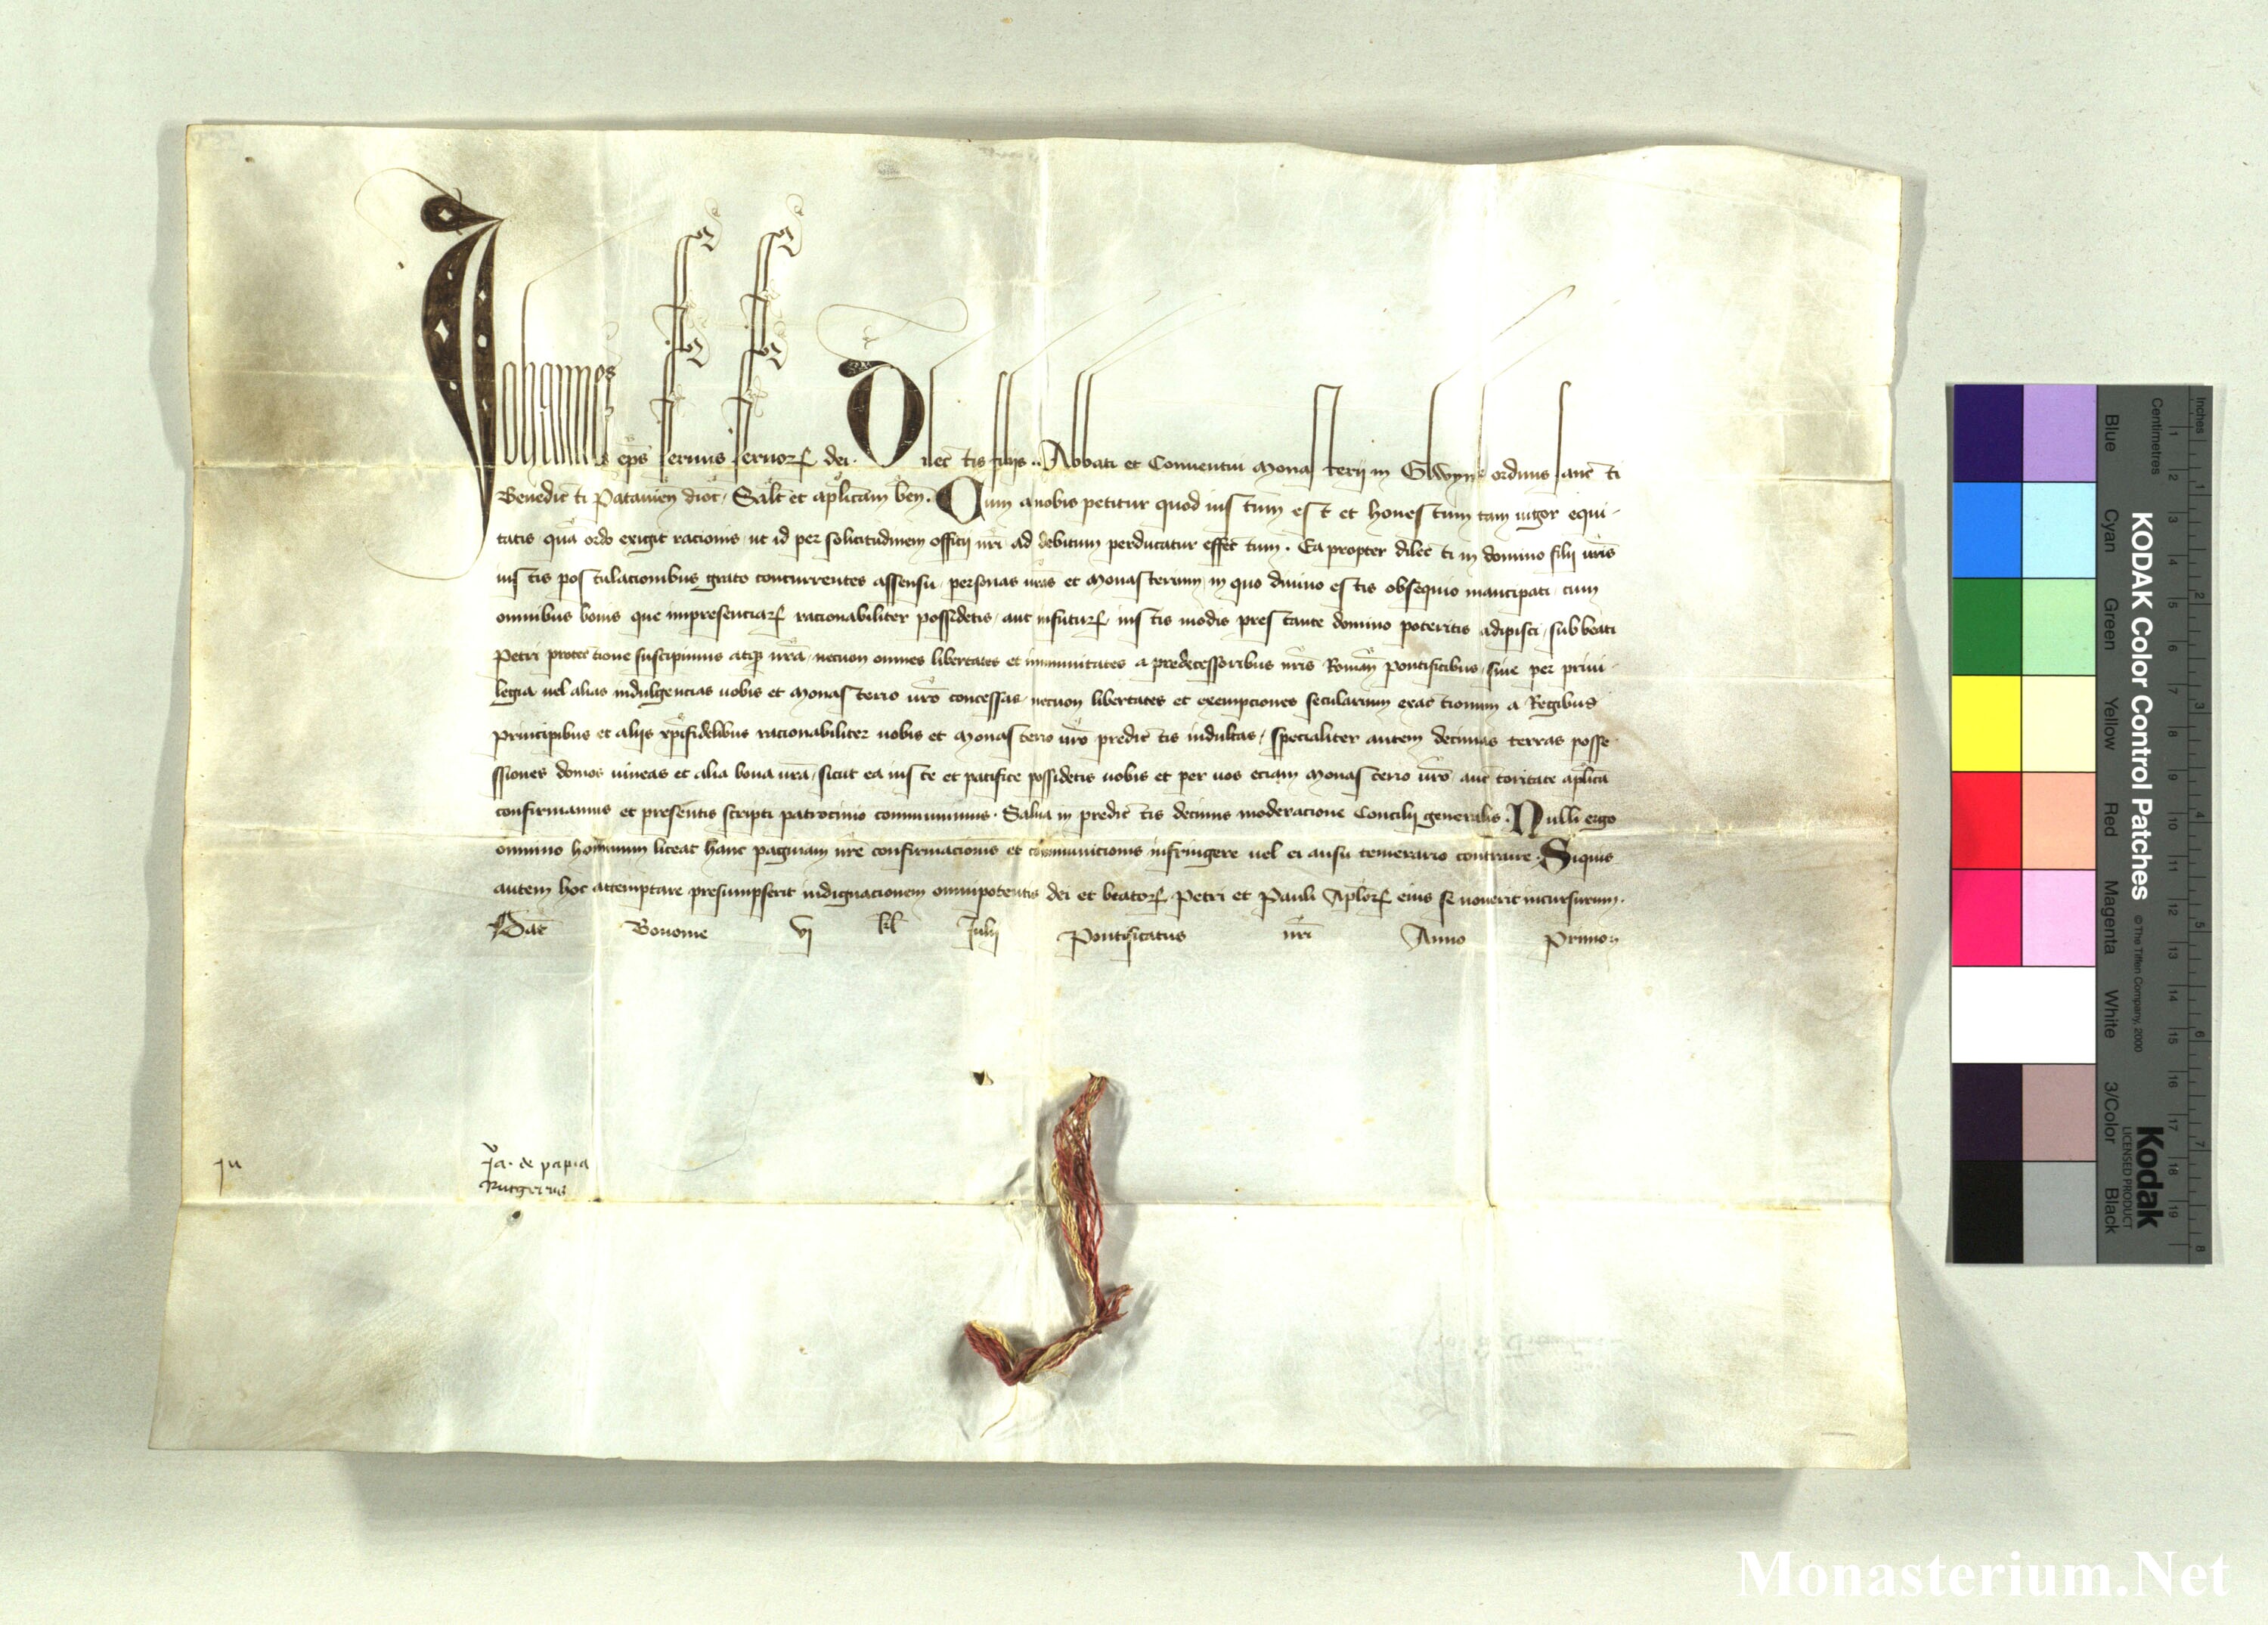 Johannes ep̄s seruus seruoꝝ dei. Dilectis filijs .. Abbati et Conuentui Monasterij in Gotwyco ordinis sancti
Benedicti Patauien̄ dioc̄. Sal̄t et apl̄icam ben̄. Cum a nobis petitur quod iustum est et honestum tam uigor equi-
tatis quā ordo exigit racionis, ut id per solicitudinem officij nr̄i ad debitum perducatur effectum. Ea propter dilecti in domino filij ur̄is
iustis postulacionibus grato concurrentes assensu, personas ur̄as et Monasterium, in quo diuino estis obsequio mancipati, cum
omnibus bonis que inpresenciaꝝ racionabiliter possidetis, aut infutuꝝ iustis modis prestante domino poteritis adipisci, sub beati
Petri protectione suscipimus atqꝫ nr̄a, necnon omnes libertates et immunitates a predecessoribus nr̄is Roman̄ pontificibus, siue per priui-
legia uel alias indulgencias uobis et Monasterio ur̄o concessas, necnon libertates et exempciones secularium exactionum a Regibus
Principibus et alijs xp̄ifidelibus racionabiliter uobis et Monasterio ur̄o predictis indultas, specialiter autem decimas terras posse-
ssiones domos uineas et alia bona ur̄a, sicut ea iuste et pacifice possidetis uobis et per uos eciam Monasterio ur̄o, auctoritate apl̄ica
confirmamus et presentis scripti patrocinio communimus. Salua in predictis decimis moderacione Concilij generalis. Nulli ergo
omnino hominum liceat hanc paginam nr̄e confirmacionis et communicionis infringere uel ei ausu temerario contraire. Siquis
autem hoc attemptare presumpserit indignacionem omnipotentis dei et beatoꝝ Petri et Pauli Apl̄oꝝ eius se nouerit incursurum.
Dat̄ Bononie vj kl̄ Julij Pontificatus nr̄i Anno Primo
Ja. de papia
Rutgerus
KODAK Color Control Patches
© The Tiffen Company, 2000
Kodak
LICENSED PRODUCT
Blue Cyan Green Yellow Red Magenta White 3/Color Black
Centimetres 1 2 3 4 5 6 7 8 9 10 11 12 13 14 15 16 17 18 19
Inches 1 2 3 4 5 6 7 8
Monasterium.Net